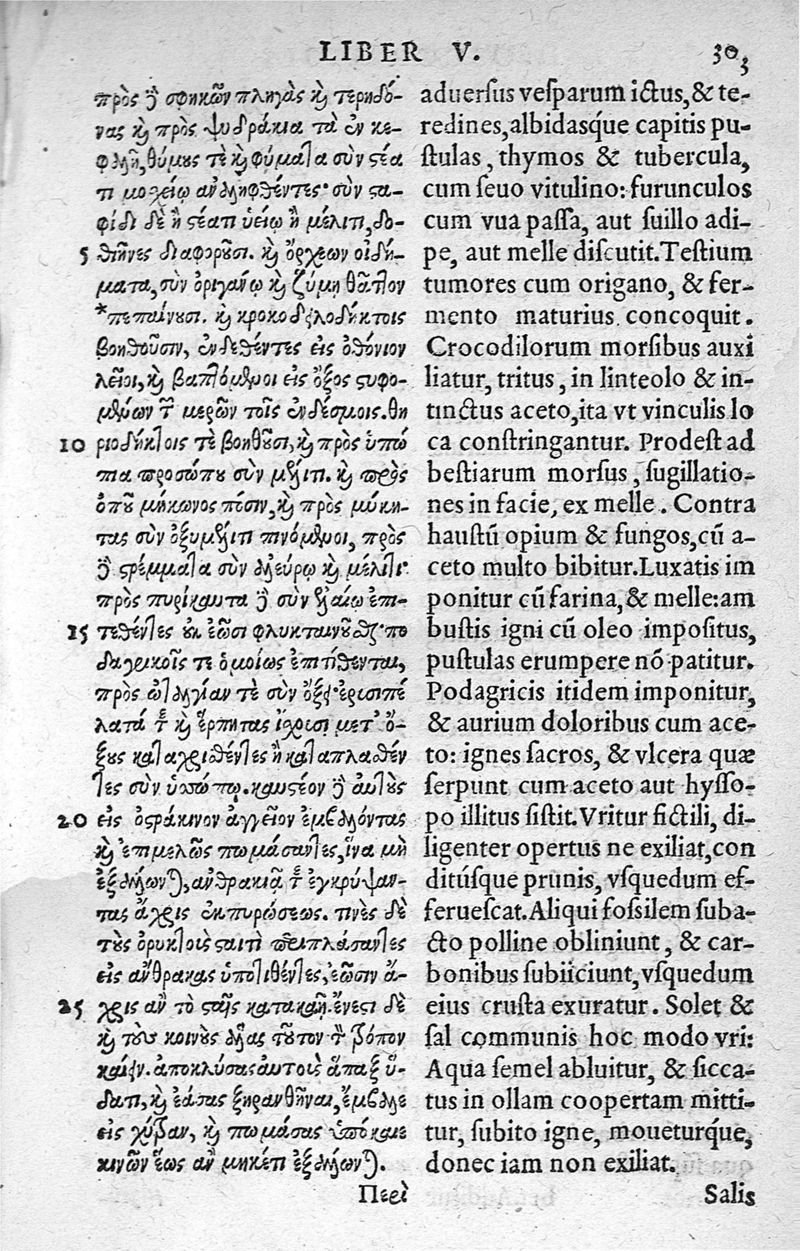 LIBER V. 303
πρὸς ἢ σφηκῶν πληγὰς καὶ τερηδό-
νας καὶ πρὸς ψυδράκια τὰ ἐν κε-
φαλῇ, θύμους τὲ καὶ φύματα σὺν στέα
τι μοχείῳ ἀναληφθέντες· σὺν στα-
φίδι δὲ ἢ στέατι ὑείῳ ἢ μέλιτι, δο-
5 θιῆνες διαφοροῦσι. καὶ ὄρχεων οἰδή-
ματα, σὺν ὀριγάνῳ καὶ ζύμῃ θᾶττον
*πεπαίνουσι. καὶ κροκοδειλοδήκτοις
βοηθοῦσιν, ἐνδεθέντες εἰς ὀθόνιον
λεῖοι, καὶ βαπτόμενοι εἰς ὄξος στυφο-
μένων τῶν μερῶν τοῖς ἐνδέσμοις. θη
10 ριοδήκτοις τὲ βοηθοῦσι, καὶ πρὸς ὑπώ
πια προσώπου σὺν μέλιτι. καὶ πρὸς
ὀποῦ μήκωνος πόσιν, καὶ πρὸς μύκη-
τας σὺν ὀξυμέλιτι πινόμενοι, πρὸς
στρέμματα σὺν ἀλεύρῳ καὶ μέλιτι·
πρὸς πυρίκαυτα σὺν ἐλαίῳ ἐπι-
15 τεθέντες οὐκ ἐῶσι φλυκταινοῦσθαι· πο
δαγρικοῖς τε ὁμοίως ἐπιτίθενται,
πρὸς ὠταλγίαν τὲ σὺν ὄξει· ἐρισιπέ
λατά τε καὶ ἕρπητας ἵστησι μετ' ὄ-
ξους καταχρισθέντες ἢ καταπλασθέν
τες σὺν ὑσσώπῳ. καυστέον αὐτοὺς
20 εἰς ὀστράκινον ἀγγεῖον ἐμβαλόντας
καὶ ἐπιμελῶς πωμάσαντες, ἵνα μὴ
ἐξάλλωνται, ἀνθρακιᾷ τε ἐγκρύψαν-
τας ἄχρις ἐκπυρώσεως. τινὲς δὲ
τοὺς ὀρυκτοὺς σταιτὶ περιπλάσαντες
εἰς ἄνθρακας ὑποτιθέντες, ἐῶσιν ἄ-
25 χρις ἂν τὸ σταῖς κατακαῇ. ἔνεστι δὲ
καὶ τοὺς κοινοὺς ἅλας τοῦτον τὸν τρόπον
καίειν. ἀποκλύσας αὐτοὺς ἅπαξ ὕ-
δατι, καὶ ἐάσας ξηρανθῆναι, ἔμβαλε
εἰς χύτραν, καὶ πωμάσας ὑπόκαιε
κινῶν ἕως ἂν μηκέτι ἐξάλλωνται.
Περὶ
aduersus vesparum ictus, & te-
redines, albidasque capitis pu-
stulas, thymos & tubercula,
cum seuo vitulino: furunculos
cum vua passa, aut suillo adi-
pe, aut melle discutit. Testium
tumores cum origano, & fer-
mento maturius concoquit.
Crocodilorum morsibus auxi
liatur, tritus, in linteolo & in-
tinctus aceto, ita vt vinculis lo
ca constringantur. Prodest ad
bestiarum morsus, sugillatio-
nes in facie, ex melle. Contra
haustū opium & fungos, cū a-
ceto multo bibitur. Luxatis im
ponitur cū farina, & melle: am
bustis igni cū oleo impositus,
pustulas erumpere nō patitur.
Podagricis itidem imponitur,
& aurium doloribus cum ace-
to: ignes sacros, & vlcera quæ
serpunt cum aceto aut hysso-
po illitus sistit. Vritur fictili, di-
ligenter opertus ne exiliat, con
ditúsque prunis, vsquedum ef-
feruescat. Aliqui fossilem suba-
cto polline obliniunt, & car-
bonibus subiiciunt, vsquedum
eius crusta exuratur. Solet &
sal communis hoc modo vri:
Aqua semel abluitur, & sicca-
tus in ollam coopertam mitti-
tur, subito igne, moueturq́ue,
donec iam non exiliat.
Salis